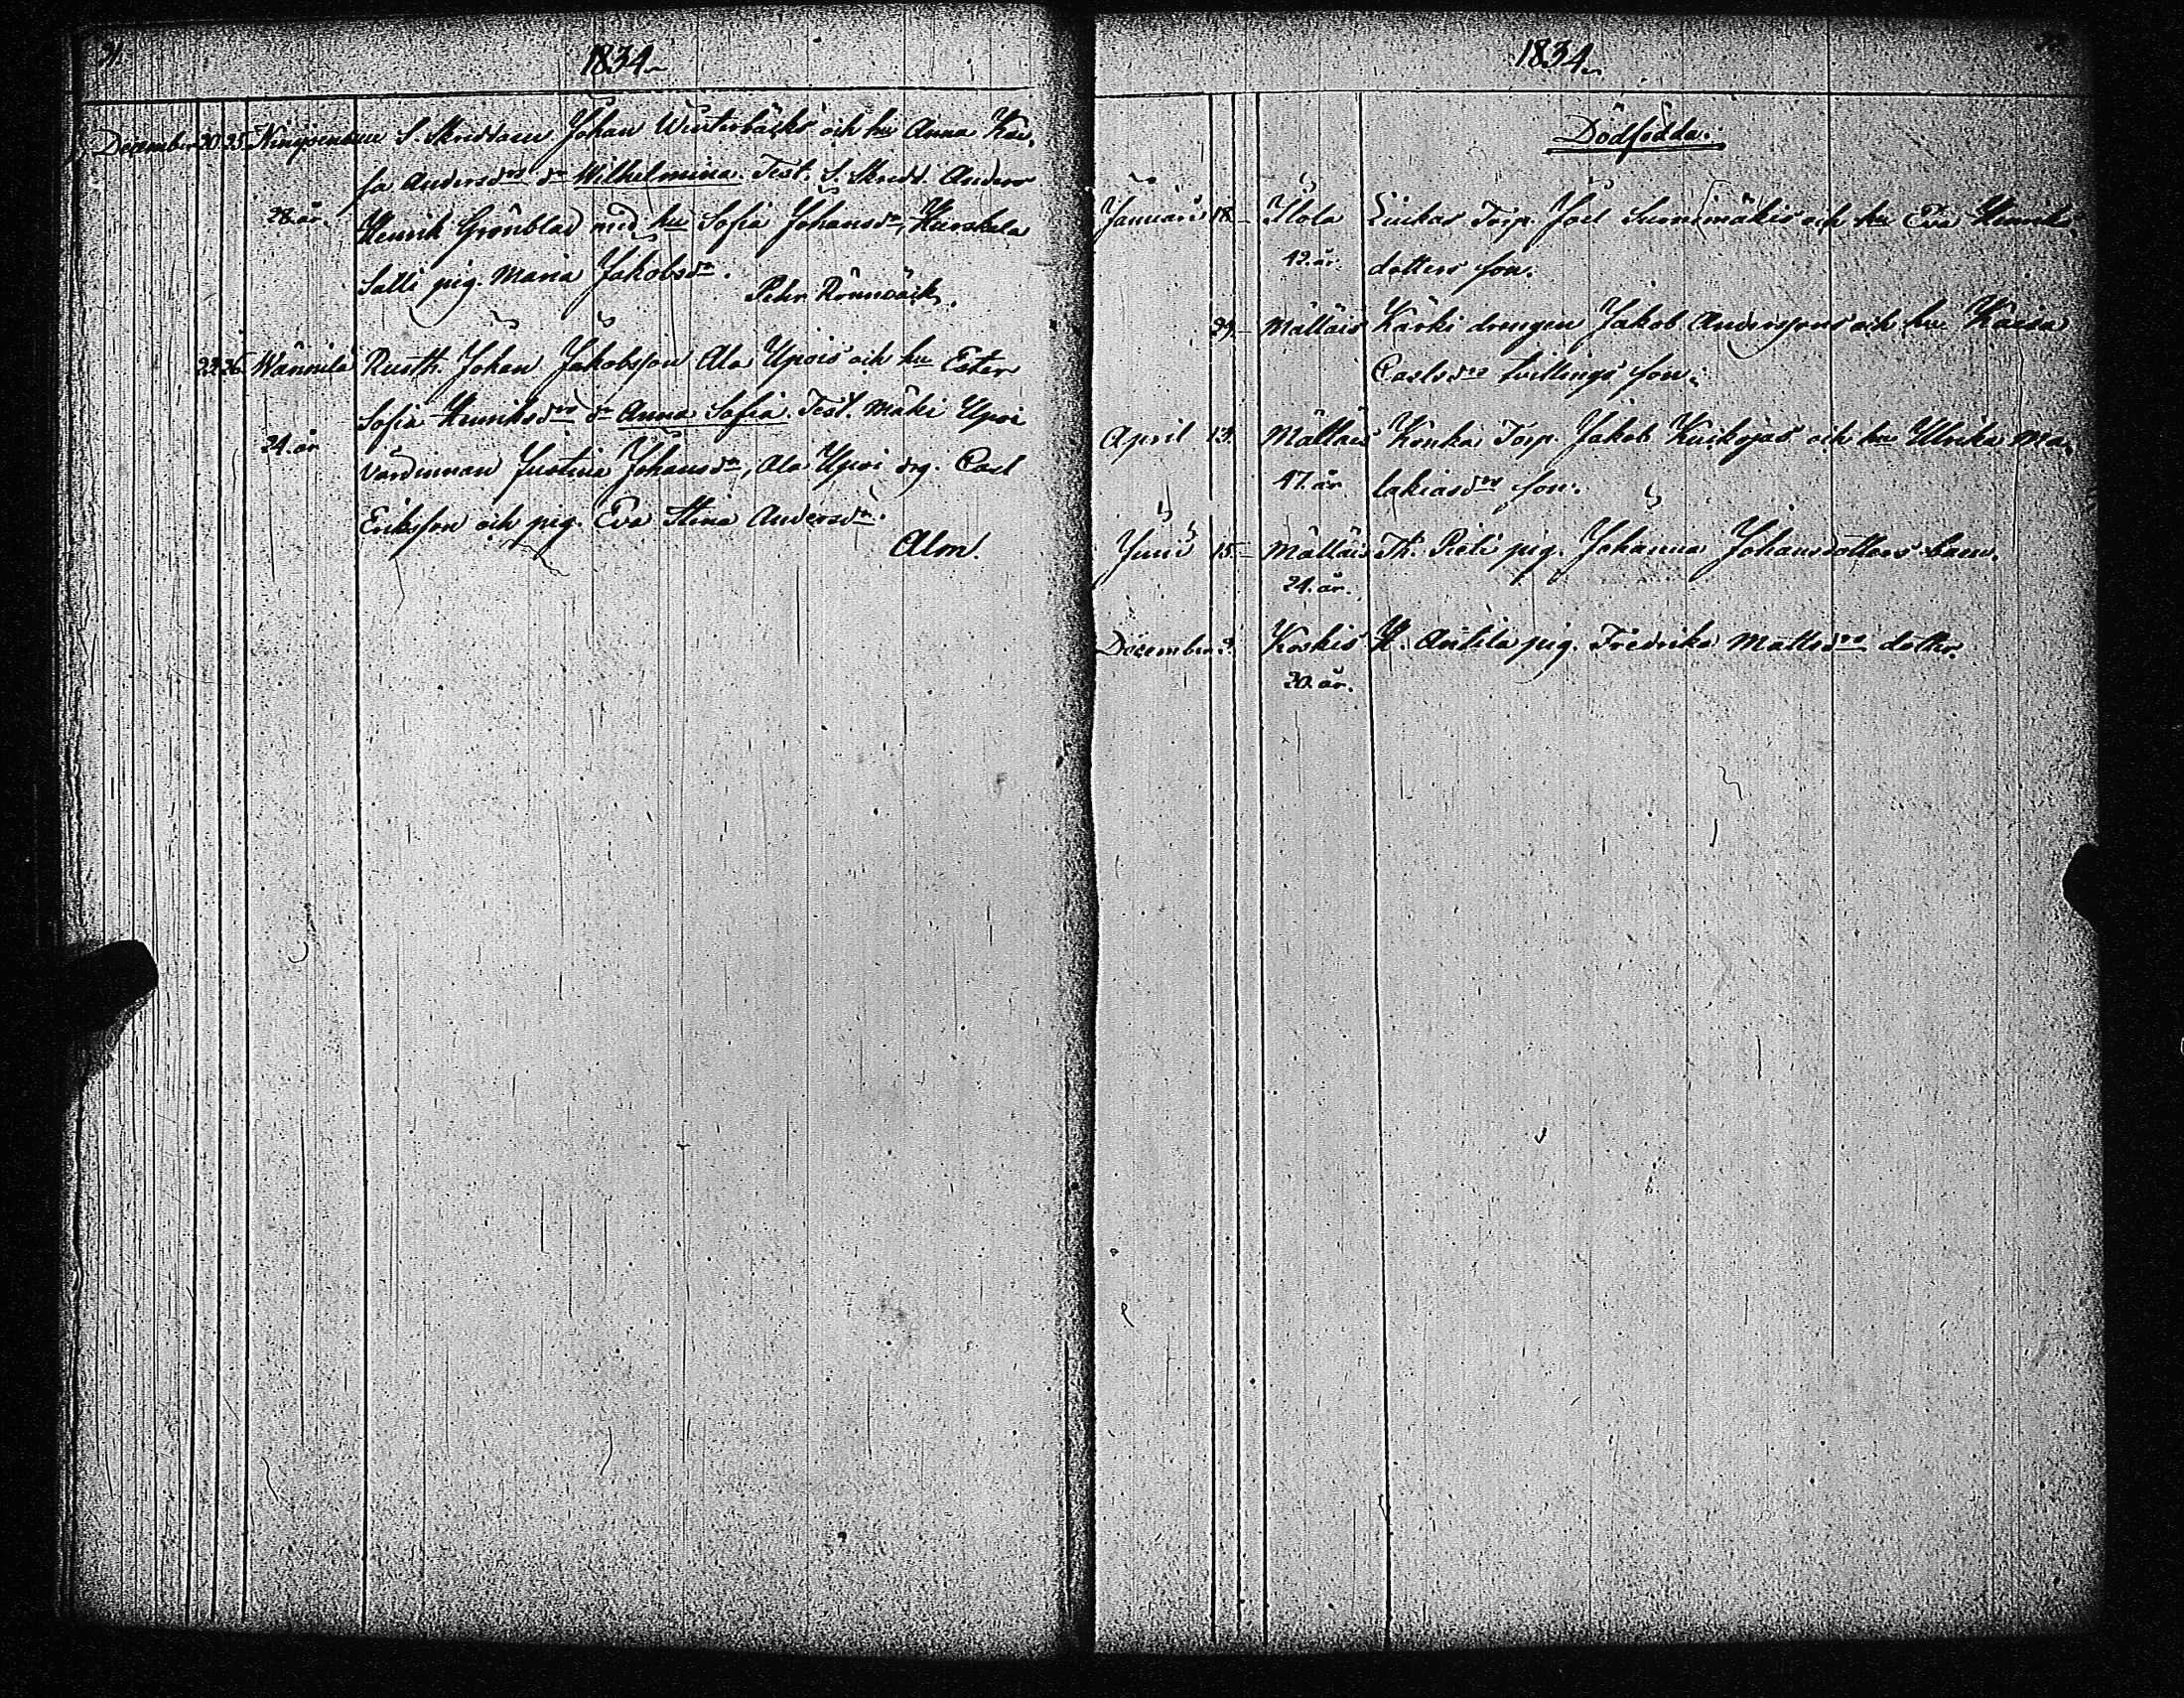 91.
1834.
December 20. 25. S. Skreddaren Johan Winterbäcks och hu Anna Kai,
sa Andersdrs dr Wilhelmina. Test. S. Skredd. Anders
28. år. Henrik Grönblad med hu Sofia Johansdr, Heurskela
Salli pig. Maria Jakobsdr.
Petter Rönnbäck.
22. 26. Wännilä Rusth. Johan Jakobsson Ala Upois och hu Ester
Sofia Henriksdrs dr Anna Sofia. Test. Mäki Upoi
24. år värdinnan Justina Johansdr, Ala Upoi drg. Carl
Eriksson och pig. Eva Stina Andersdr.
Alm.
1834.
Dödfödda.
Januari 18. Ilola Torp. Joel Suonimäkis och hu Eva Henriks
42. år. dotters son.
29. Mälläis Kärki drengen Jakob Anderssons och hu Kaisa
Carlsdrs tvillings son.
April 13. Mälläis Konka Torp. Jakob Kuikojas och hu Ulrika Ma,
47. år lakiasdrs son.
Junii 15. Mälläis Th. Pieli pig. Johanna Johansdotters barn.
24. år.
December 3. Koskis H. Anttila pig. Fredrika Mattsdrs dotter.
20. år.